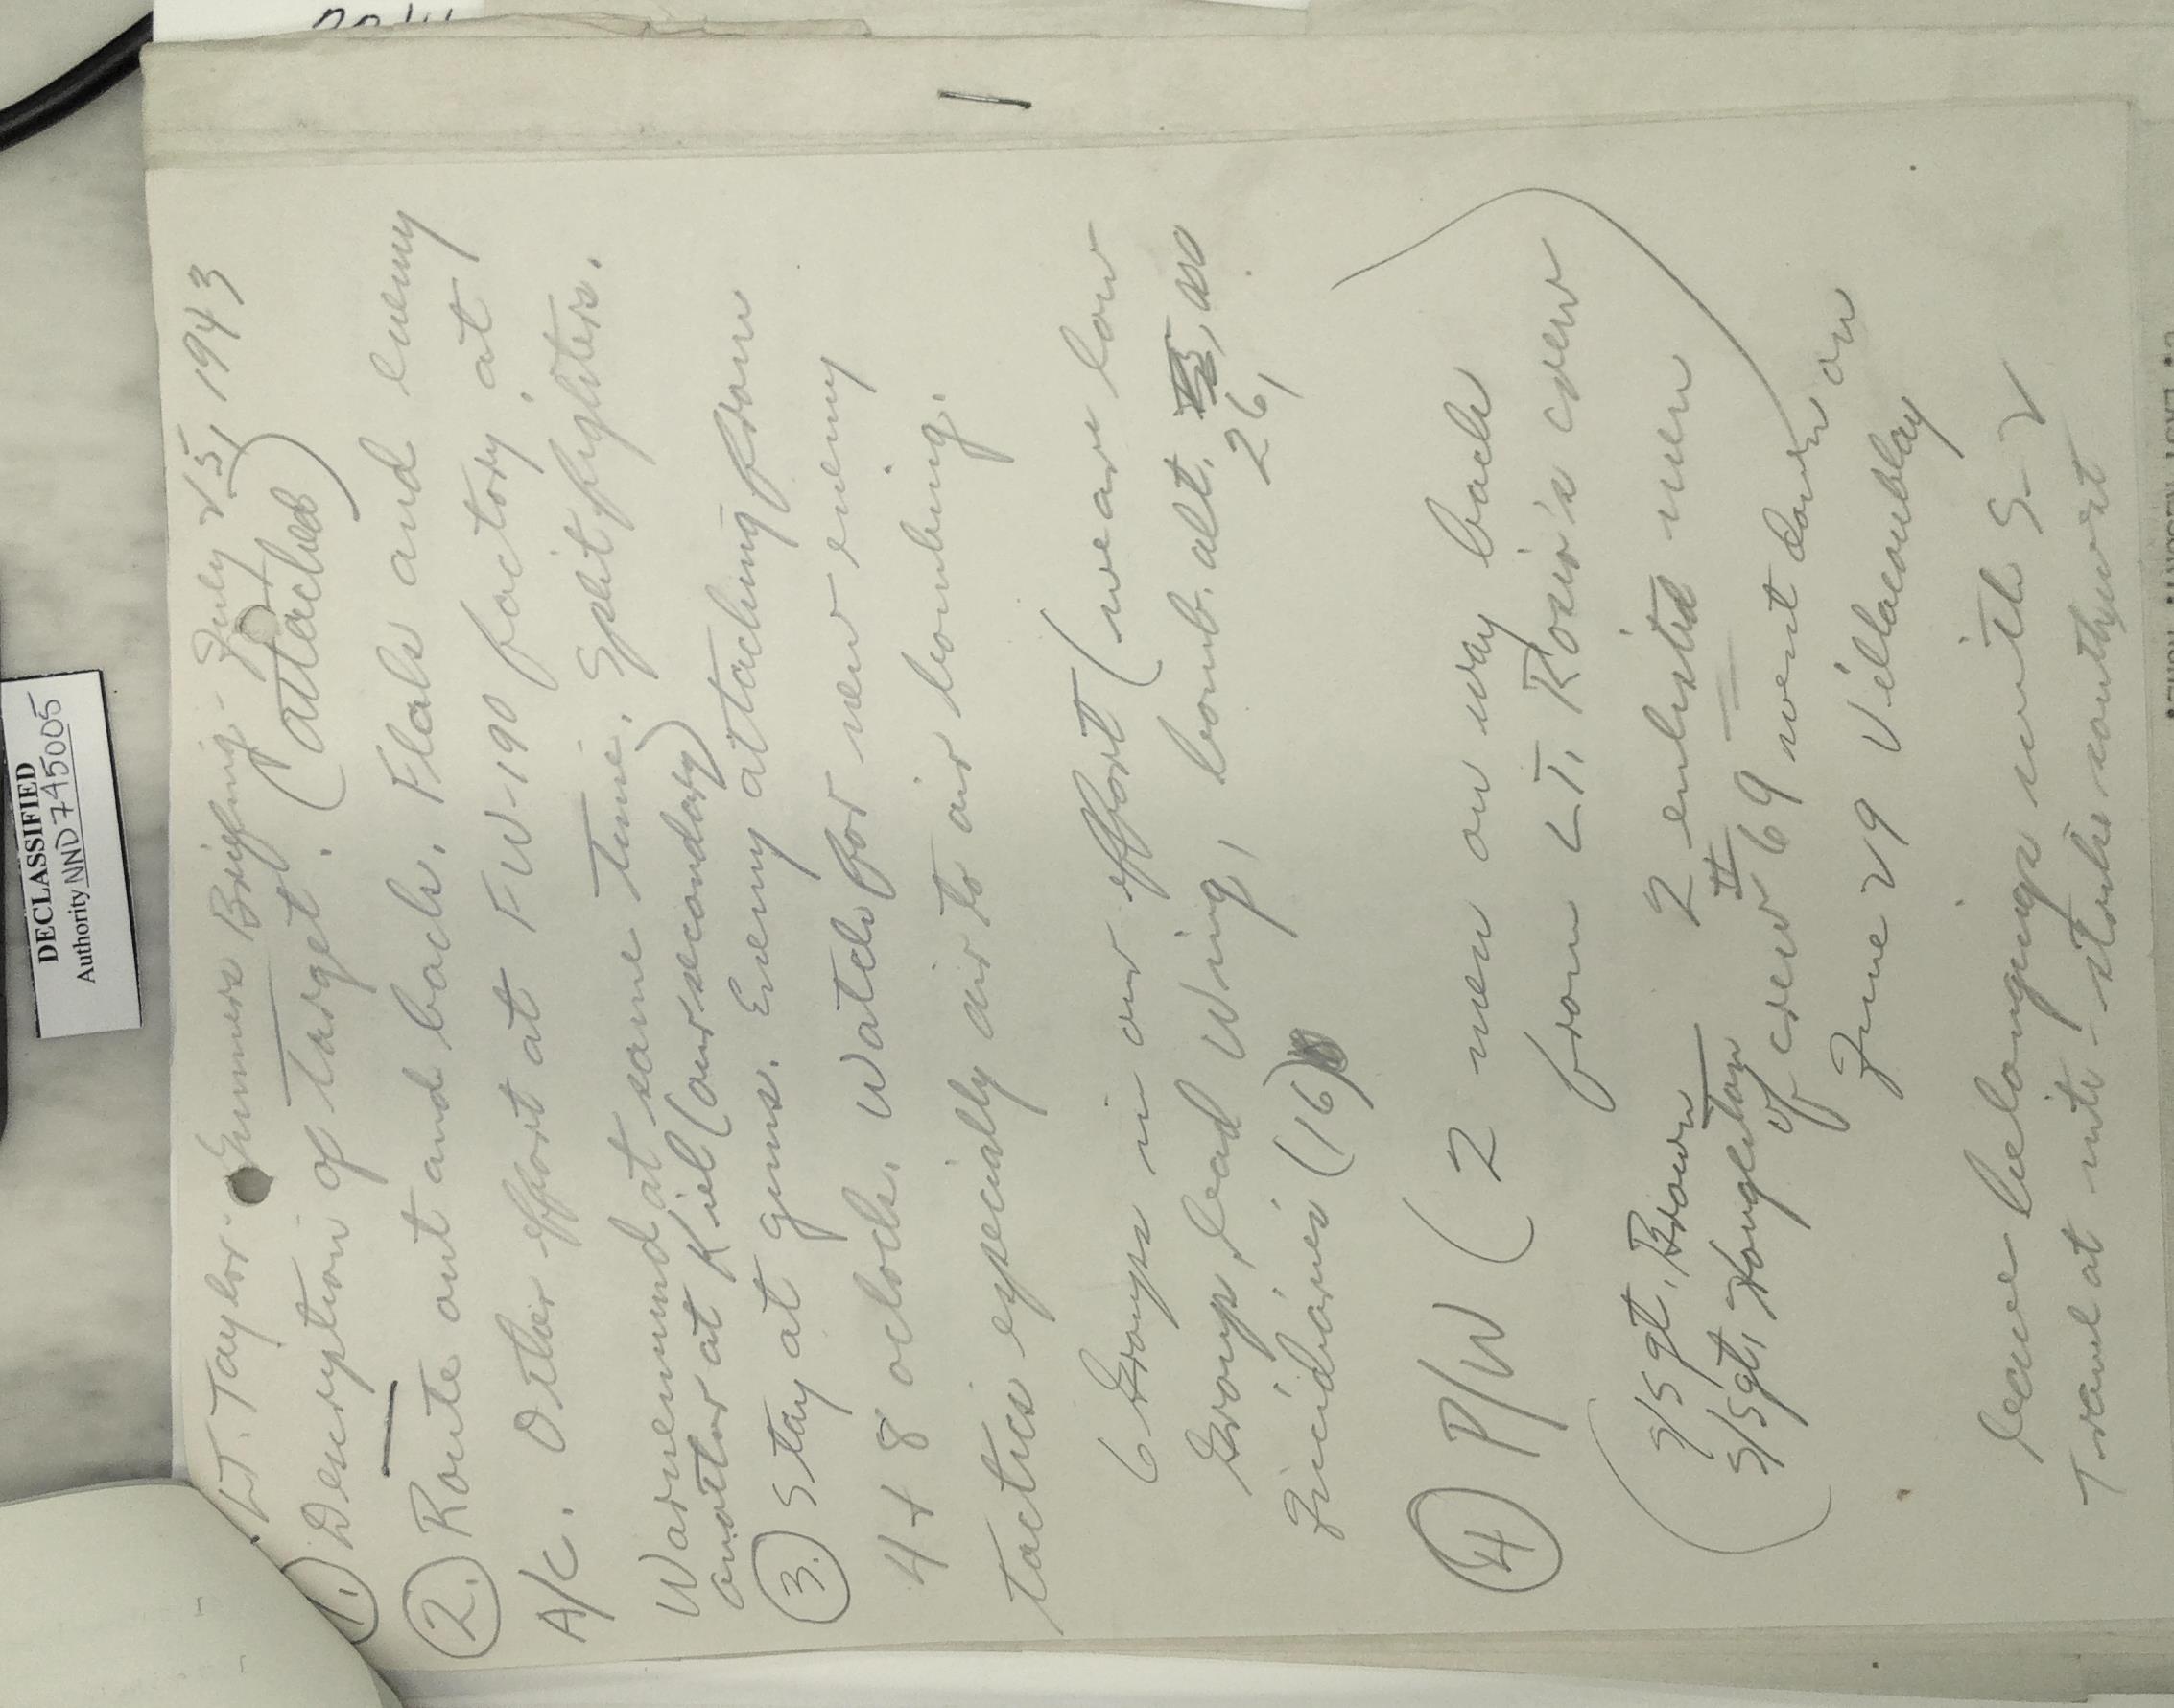 DECLASSIFIED
Authority NND 745005
LT. Taylor - Gunners Briefing - July 25, 1943
1. Description of Target. (attached)
2. Route out and back. Flak and enemy
A/C. Other effort at FW-190 factory at
Warnemund at same time. Split fighters.
another at Kiel (our secondary)
3. Stay at guns. Enemy attacking from
4 + 8 oclock. Watch for new enemy
tactics especially air to air bombing.
6 Groups in our effort (we are low
Group, lead Wing, bomb. alt. 26,000
Incidiaries (16)
4 P/W (2 men on way back
from LT. Rosio's crew
S/Sgt. Brown 2 enlisted men
S/Sgt. Houghton of crew #69 went down on
June 29 Villacoublay
leave belongings with S-2
Travel at nite - strike southwest